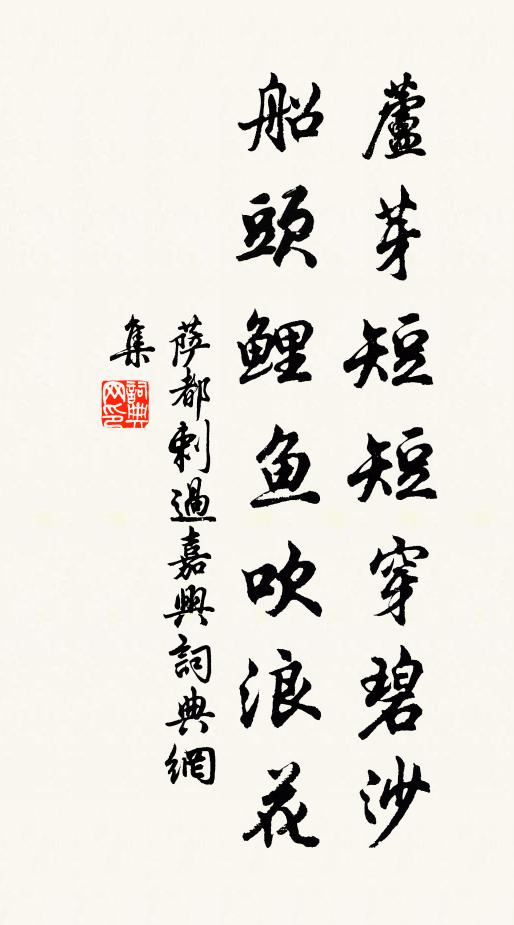 蘆芽短短穿碧沙
船頭鯉魚吹浪花
萨都剌過嘉興詞典網
集
詞典
网印